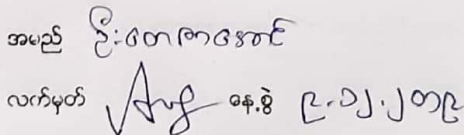 အမည် ဦးတေဇာအောင်
လက်မှတ် နေ့စွဲ ၉.၁၂.၂၀၁၉